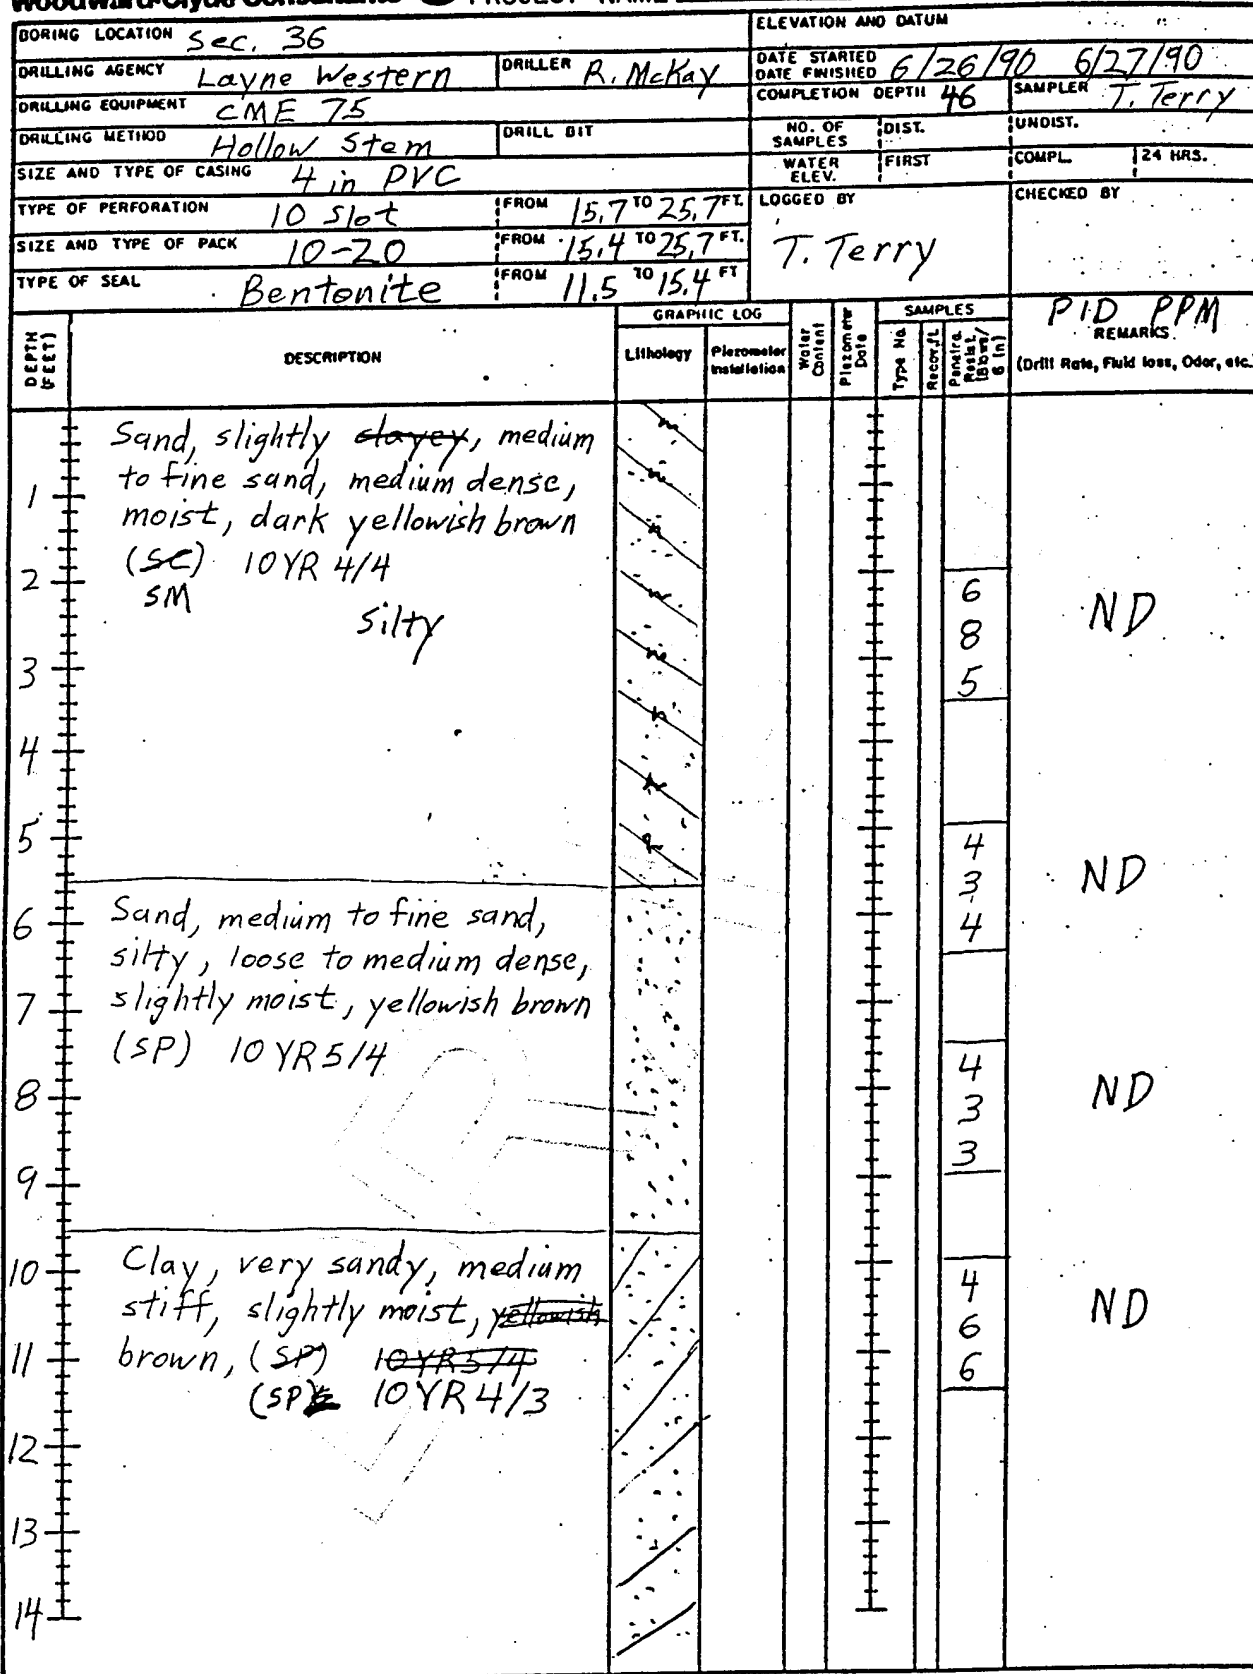 Woodward-Clyde Consultants PROJECT NAME
BORING LOCATION Sec. 36 ELEVATION AND DATUM
DRILLING AGENCY Layne Western DRILLER R. McKay DATE STARTED DATE FINISHED 6/26/90 6/27/90
DRILLING EQUIPMENT CME 75 COMPLETION DEPTH 46 SAMPLER T. Terry
DRILLING METHOD Hollow Stem DRILL BIT NO. OF SAMPLES DIST. UNDIST.
SIZE AND TYPE OF CASING 4 in PVC WATER ELEV. FIRST COMPL. 24 HRS.
TYPE OF PERFORATION 10 Slot FROM 15.7 TO 25.7 FT. LOGGED BY T. Terry CHECKED BY
SIZE AND TYPE OF PACK 10-20 FROM 15.4 TO 25.7 FT.
TYPE OF SEAL Bentonite FROM 11.5 TO 15.4 FT
DEPTH (FEET) DESCRIPTION GRAPHIC LOG Lithology Piezometer Installation Water Content Piezometer Date SAMPLES Type No. Recov. ft. Penetra. Resist. (Blows/6 in) PID PPM REMARKS (Drill Rate, Fluid loss, Odor, etc.)
Sand, slightly clayey, medium
1 to fine sand, medium dense,
moist, dark yellowish brown
2 (SC) 10YR 4/4
SM 6 ND
silty 8
3 5
4
5 4 ND
3
6 Sand, medium to fine sand, 4
silty, loose to medium dense,
7 slightly moist, yellowish brown
(SP) 10YR5/4 4
8 3 ND
3
9
10 Clay, very sandy, medium 4
stiff, slightly moist, yellowish 6 ND
11 brown, (SP) 10YR5/4 6
(SP) 10YR4/3
12
13
14